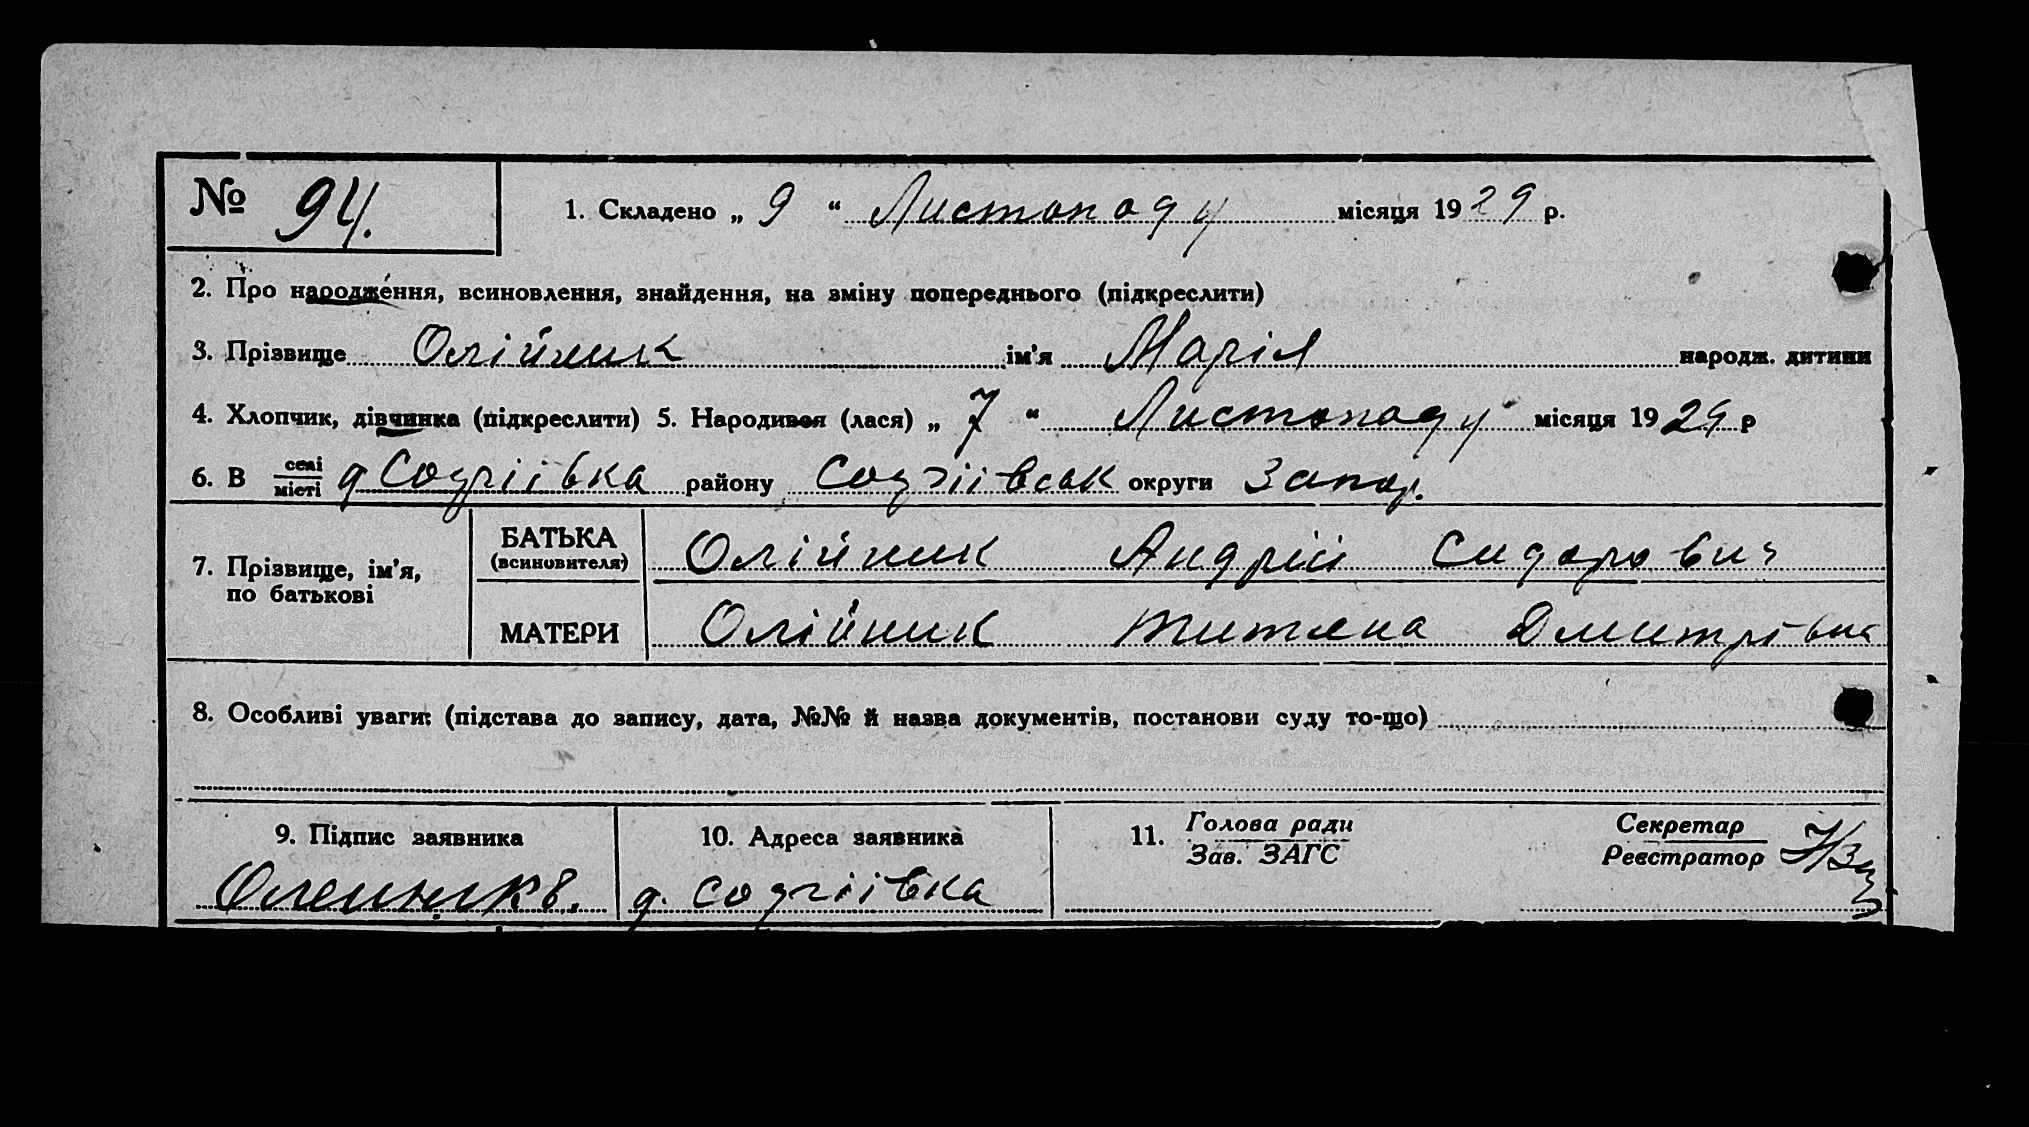 № 94.
1. Складено „ 9 “ Листопаду місяця 1929 р.
2. Про народження, всиновлення, знайдення, на зміну попереднього (підкреслити)
3. Прізвище Олійник ім'я Марія народж. дитини
4. Хлопчик, дівчинка (підкреслити) 5. Народився (лася) „ 7 “ Листопаду місяця 1929 р
6. В селі
місті д Софіївка району Софіївськ округи Запор.
7. Прізвище, ім'я,
по батькові
БАТЬКА
(всиновителя)
Олійник Андрій Сидорович
МАТЕРИ Олійник Титяна Дмитрівна
8. Особливі уваги: (підстава до запису, дата, №№ й назва документів, постанови суду то-що)
9. Підпис заявника 10. Адреса заявника 11. Голова ради
Зав. ЗАГС
Секретар
Реєстратор
д. Софіївка